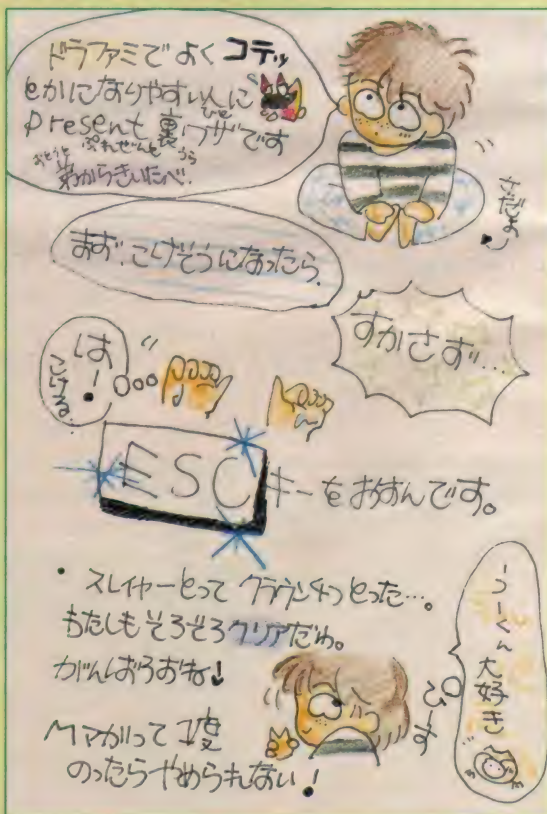 ドラファミでよくコテッ
とかになりやすい人に
ひと
present裏ワザです
ぷれぜんと うら
おとうと
弟からきいたべ.
さだよ
まず、こけそうになったら、
すかさず…
はー!
こける。
ESCキーをおすんです。
・スレイヤーとって クラウン4つとった…。
わたしもそろそろクリアだわ。
がんばろおね!
Mマガって1度
のったらやめられない!
つーくん大好き